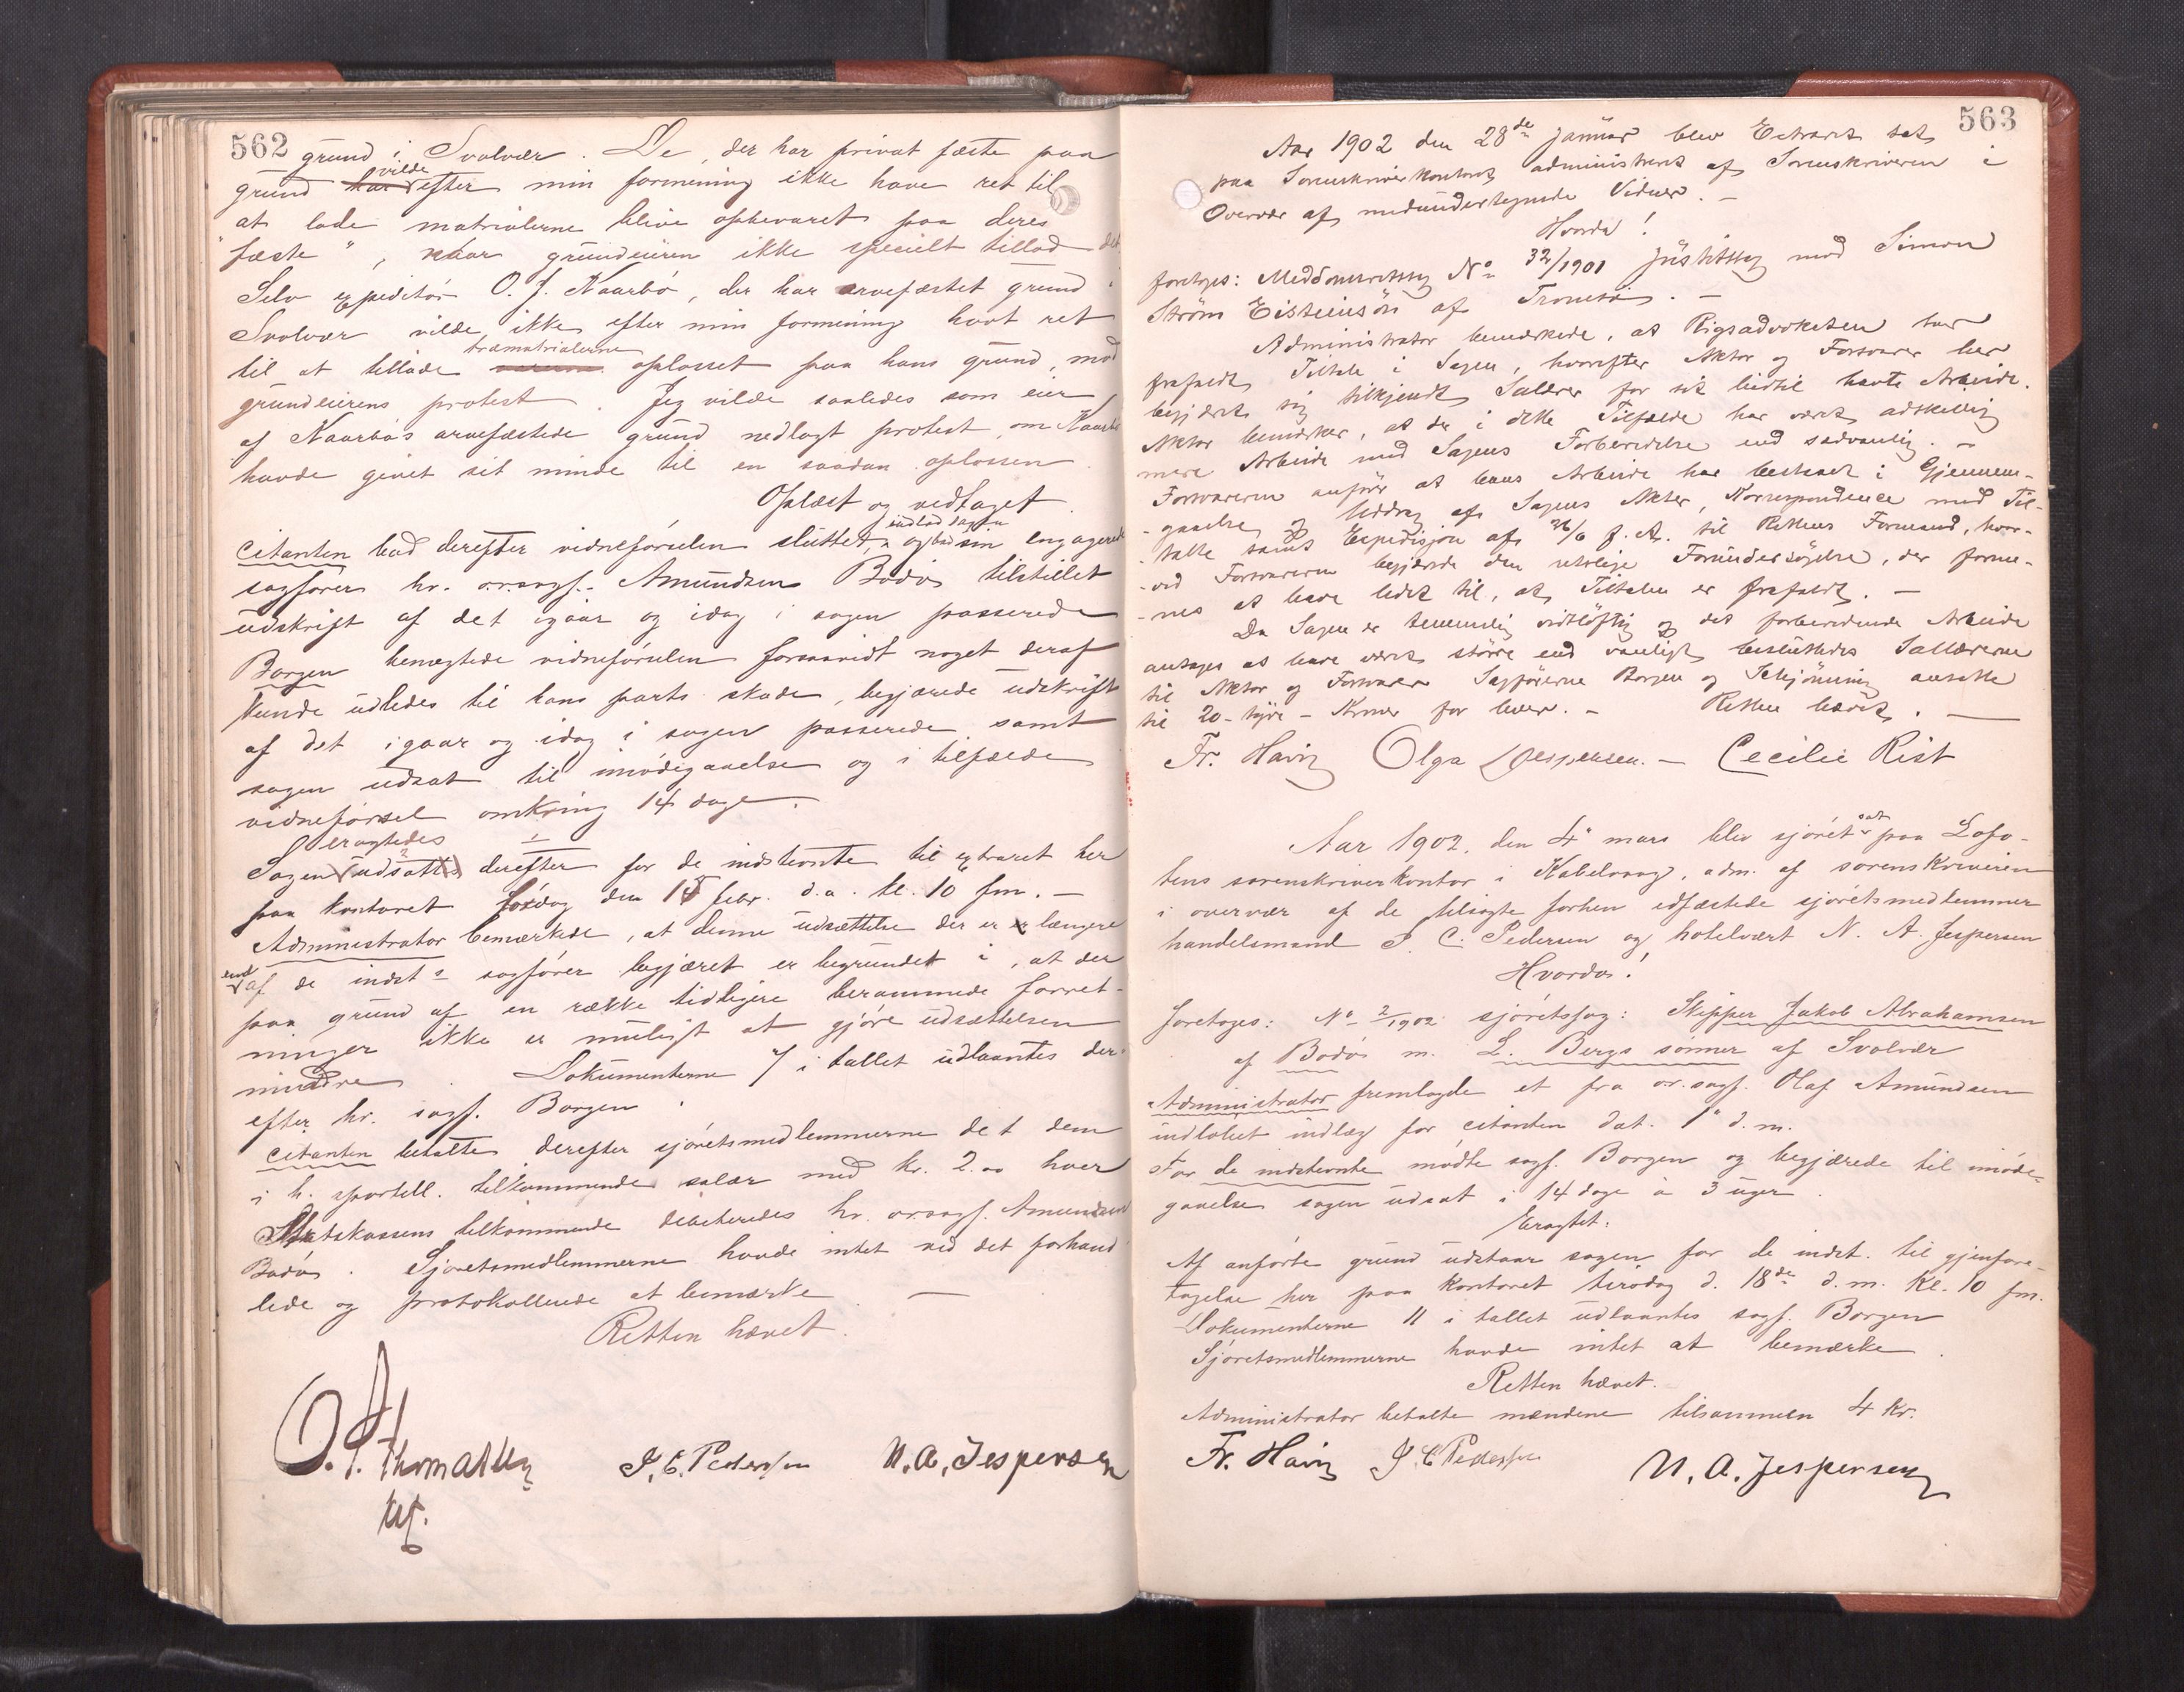 562
grund i Svolvær. De, der har privat fæste paa
vilde
grund har efter min formening ikke have ret til
at lade matrialerne blive opbevaret paa deres
"fæste", naar grundeieren ikke specielt tillod det
Selv expeditør O. J. Kaarbø, der har arvefæstet grund i
Svolvær vilde ikke efter min formening havt ret
træmatrialerne
til at tillade varerne oplosset paa hans grund, mod
grundeierens protest. Jeg vilde saaledes som eier
af Kaarbøs arvefæstede grund nedlagt protest, om Kaarbø
havde givet sit minde til en saadan oplossen.
Oplæst og vedtaget.
indlod sagen
Citanten lod derefter vidneførselen sluttet, og bad sin engagerede
sagfører hr. o.r.sagf. Amundsen Bodø tilstillet
udskrift af det igaar og idag i sagen passerede
Borgen benegtede vidneførselen forsaavidt noget deraf
kunde udledes til hans parts skade, begjærede udskrift
af det igaar og idag i sagen passerede samt
sagen udsat til imødegaaelse og i tilfælde
vidneførsel omkring 14 dage.
Eragtedes
Sagen udsattes derefter for de indstevnte til extraret her
paa kontoret lørdag den 15 febr. d.a. kl. 10 fm. –
Administrator bemærkede, at denne udsættelse der er længere
end af de indst's sagfører begjæret er begrundet i, at der
paa grund af en række tidligere berammede forret-
ninger ikke er muligt at gjøre udsættelsen
mindre. Dokumenterne 7 i tallet udlaantes der-
efter hr. sagf. Borgen.
Citanten betalte derefter sjøretsmedlemmerne det dem
i h. sportell. tilkommende salær med kr. 2.00 hver
Statskassens tilkommende debiteredes hr. orsagf. Amundsen
Bodø. Sjøretsmedlemmerne havde intet ved det forhand-
lede og protokollerede at bemærke. –
Retten hævet.
O. T. Thomassen
kst.
J. C. Pedersen N. A. Jespersen
563
Aar 1902 den 28de Januar blev Extraret sat
paa Sorenskriverkontoret administreret af Sorenskriveren i
Overvær af medundertegnede Vidner. –
Hvorda!
foretoges: Meddomsretssag No 32/1901 Justitssag mod Simon
Strøm Eisteinsøn af Tromsø. –
Administrator bemærkede, at Rigsadvokaten har
frafaldt Tiltale i Sagen, hvorefter Aktor og Forsvarer har
begjæret sig tilkjendt Salærer for sit hidtil havte Arbeide.
Aktor bemærker, at der i dette Tilfælde har været adskillig
mere Arbeide med Sagens Forberedelse end sædvanlig. –
Forsvareren anfører at hans Arbeide har bestaaet i Gjennem-
-gaaelse og Uddrag af Sagens Akter, Korrespondence med Til-
-talte samt Expedisjon af 26/6 f. A. til Rettens Formand, hvor-
-ved Forsvareren begjærede den retslige Forundersøgelse, der forme-
-nes at have ledet til, at Tiltalen er frafaldt. –
Da Sagen er temmelig vidtløftig og det forberedende Arbeide
antages at have været større end vanligt besluttedes Salærerne
til Aktor og Forsvarer Sagførerne Borgen og Schjønning ansatte
til 20 – tyve – Kroner for hver. – Retten hævet. –
Fr. Havig Olga Jespersen. – Cecilie Rist
Aar 1902, den 4' mars blev sjøret sat paa Lofo-
tens sorenskriverkontor i Kabelvaag, adm. af sorenskriveren
i overvær af de tilsagte forhen edfæstede sjøretsmedlemmer
handelsmand J. C. Pedersen og hotelvært N. A. Jespersen
Hvorda!
foretoges: No 2/1902 sjøretssag: Skipper Jakob Abrahamsen
af Bodø m. L. Bergs sønner af Svolvær
Administrator fremlagde et fra or.sagf. Olaf Amundsen
indløbet indlæg for citanten dat. 1' d.m.
For de indstevnte mødte sagf. Borgen og begjærede til imøde-
gaaelse sagen udsat i 14 dage à 3 uger.
Eragtet:
Af anførte grund udstaar sagen for de indst. til gjenfore-
tagelse her paa kontoret tirsdag d. 18de d.m. kl. 10 fm.
Dokumenterne 11 i tallet udlaantes sagf. Borgen
Sjøretsmedlemmerne havde intet at bemærke.
Retten hævet.
Administrator betalte mændene tilsammen 4 kr.
Fr. Havig J. C Pedersen N. A. Jespersen